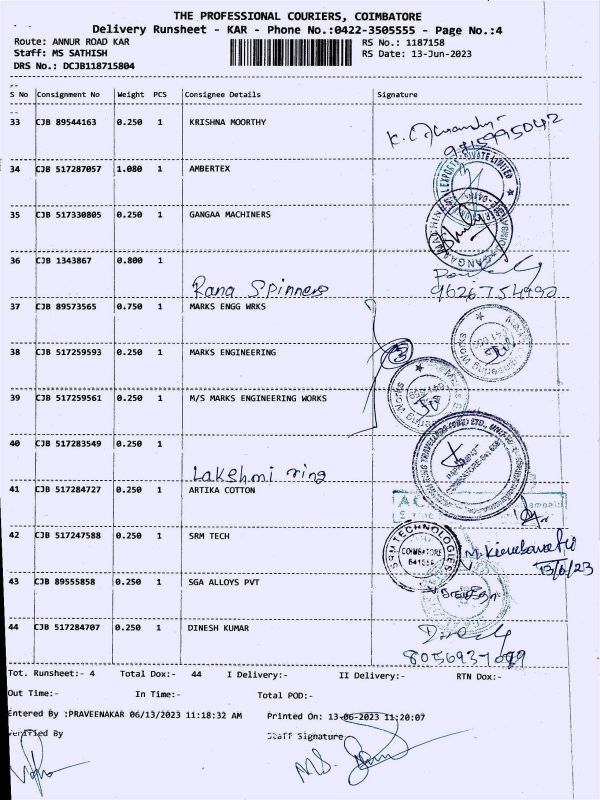 THE PROFESSIONAL COURIERS, COIMBATORE
Delivery Runsheet - KAR - Phone No.:0422-3505555 - Page No.:4
Route: ANNUR ROAD KAR RS No.: 1187158
Staff: MS SATHISH RS Date: 13-Jun-2023
DRS No.: DCJB118715804
S No Consignment No Weight PCS Consignee Details Signature
33 CJB 89544163 0.250 1 KRISHNA MOORTHY
34 CJB 517287057 1.080 1 AMBERTEX
35 CJB 517330805 0.250 1 GANGAA MACHINERS
36 CJB 1343867 0.800 1
Rana Spinners
37 CJB 89573565 0.750 1 MARKS ENGG WRKS
38 CJB 517259593 0.250 1 MARKS ENGINEERING
39 CJB 517259561 0.250 1 M/S MARKS ENGINEERING WORKS
40 CJB 517283549 0.250 1
Lakshmi ring
41 CJB 517284727 0.250 1 ARTIKA COTTON
42 CJB 517247588 0.250 1 SRM TECH
SRM TECHNOLOGIES
COIMBATORE
43 CJB 89555858 0.250 1 SGA ALLOYS PVT
44 CJB 517284707 0.250 1 DINESH KUMAR
Tot. Runsheet:- 4 Total Dox:- 44 I Delivery:- II Delivery:- RTN Dox:-
Out Time:- In Time:- Total POD:-
Entered By :PRAVEENAKAR 06/13/2023 11:18:32 AM Printed On: 13-06-2023 11:20:07
Verified By Staff Signature
MS.